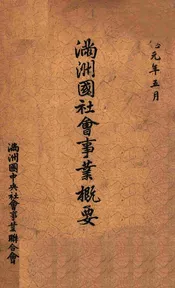 元年五月
滿洲國社會事業概要
滿洲國中央社會事業聯合會